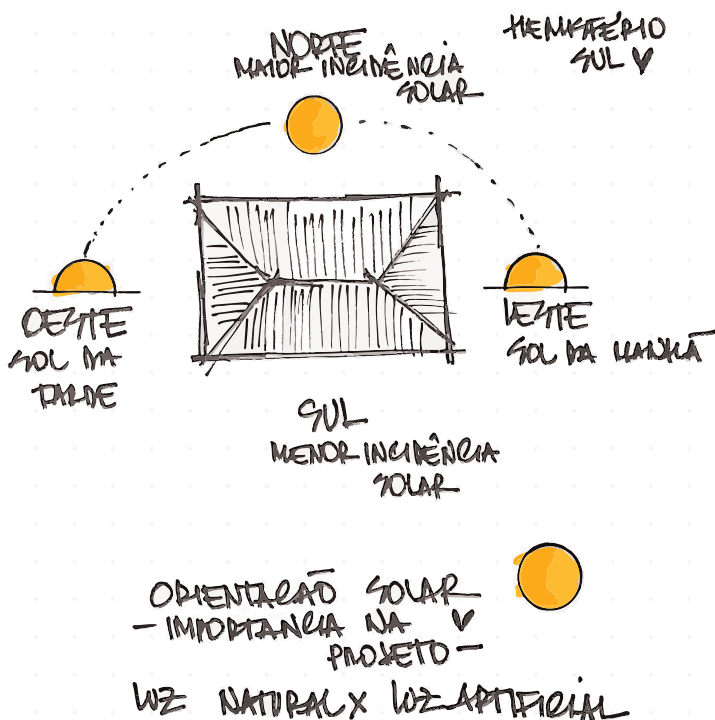 NORTE
MAIOR INCIDÊNCIA
SOLAR
HEMISFÉRIO
SUL
OESTE
SOL DA
TARDE
LESTE
SOL DA MANHÃ
SUL
MENOR INCIDÊNCIA
SOLAR
ORIENTAÇÃO SOLAR
- IMPORTANCIA NA
PROJETO -
LUZ NATURAL X LUZ ARTIFICIAL